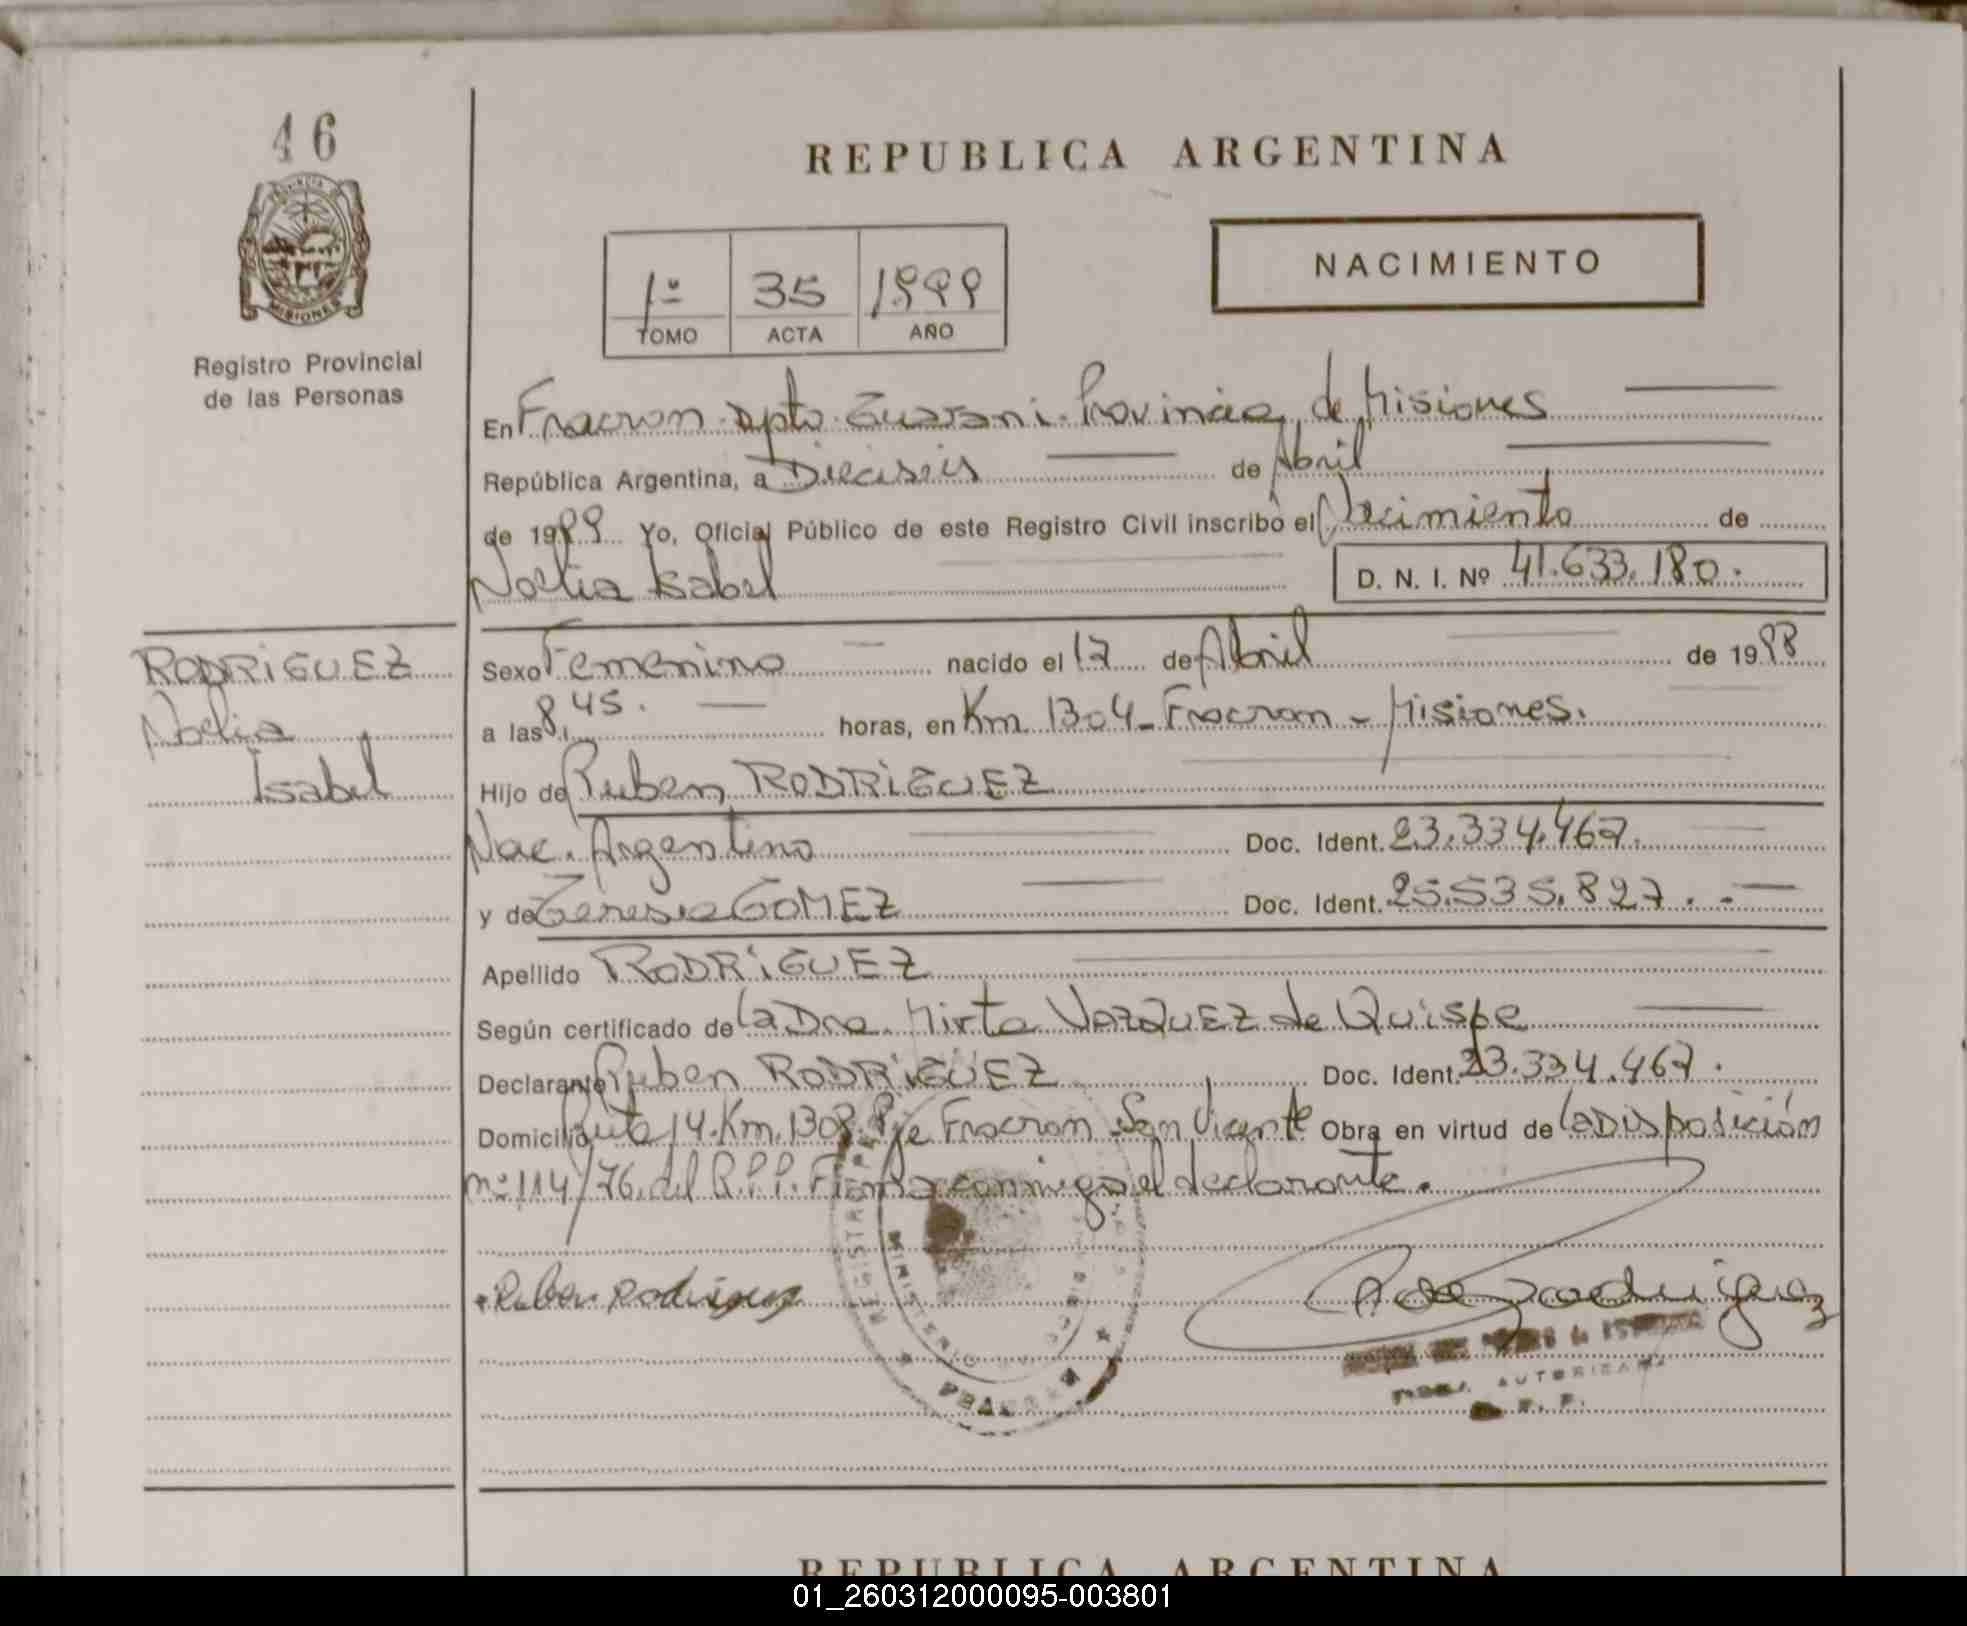 46
REPUBLICA ARGENTINA
PROVINCIA DE
MISIONES
Registro Provincial
de las Personas
1º 35 1999
TOMO ACTA AÑO
NACIMIENTO
En Fracron. Dpto. Guarani. Provincia de Misiones
República Argentina, a Dieciseis de Abril
de 1999 Yo, Oficial Público de este Registro Civil inscribo el Nacimiento de
Noelia Isabel D. N. I. Nº 41.633.180.
RODRIGUEZ
Noelia
Isabel
Sexo Femenino nacido el 17 de Abril de 1998
a las 8,45. horas, en Km 1304 - Fracron - Misiones.
Hijo de Ruben RODRIGUEZ
Nac. Argentino Doc. Ident. 23.334.467.
y de Teresa GOMEZ Doc. Ident. 25.535.827.-
Apellido RODRIGUEZ
Según certificado de la Dra. Mirta VAZQUEZ de Quispe
Declarante Ruben RODRIGUEZ Doc. Ident. 23.334.467.
Domicilio Ruta 14. Km. 1308. Pje Fracron San Vicente Obra en virtud de la Disposición
nº 114/76. del R.P.P. Firma conmigo el declarante.
Ruben Rodriguez
Rodriguez
AUTORIZADA
REPUBLICA ARGENTINA
01_260312000095-003801